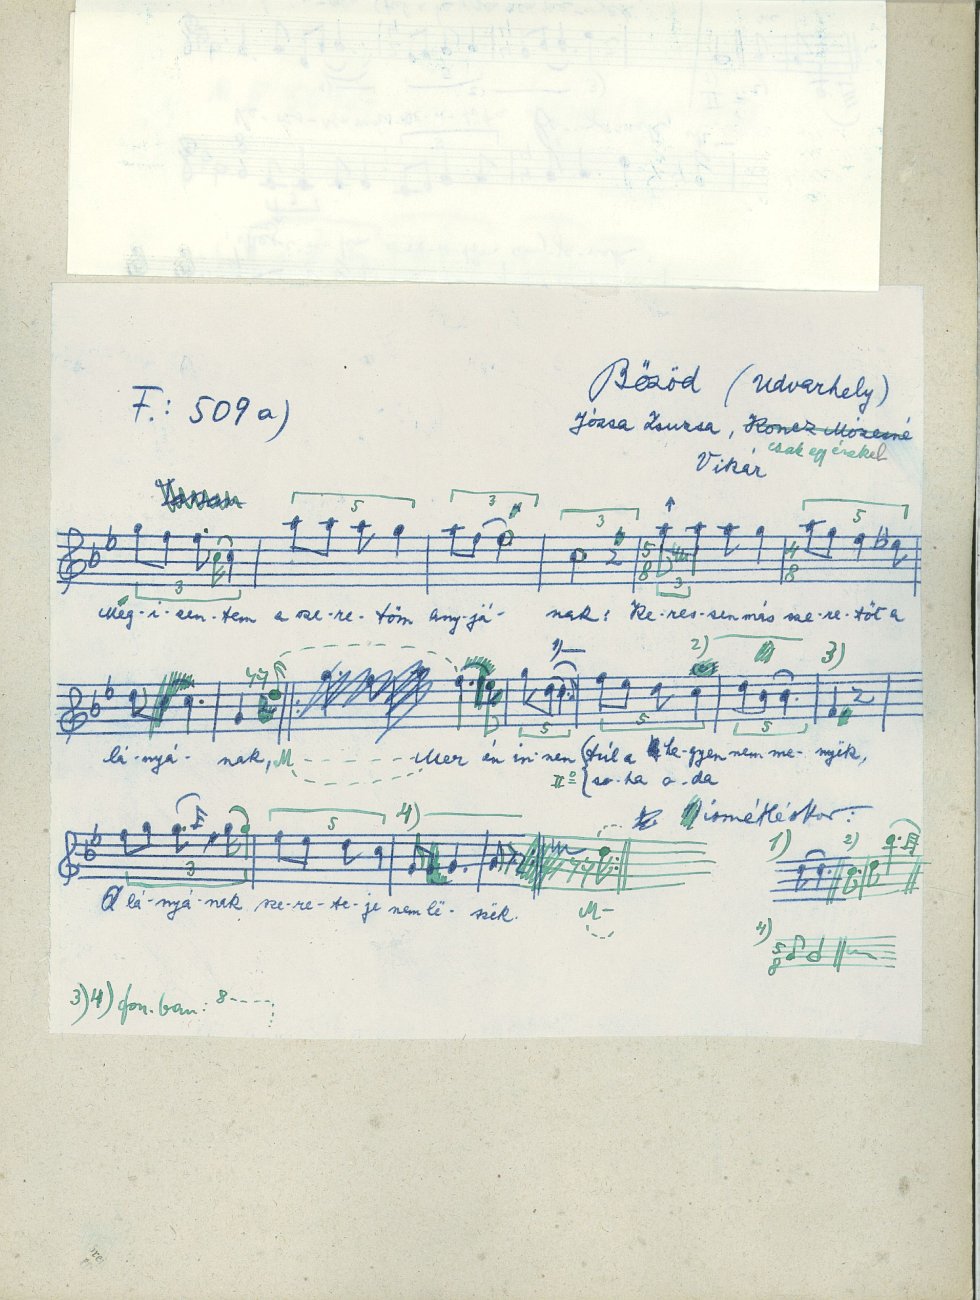 F.: 509 a)
Bözöd (Udvarhely)
Józsa Zsuzsa, Koncz Mózesné
csak egy énekel
Vikár
5 3
3 5 8 4 8 5
3 3
Meg-i-zen-tem a sze-re-töm any-já- nak: Ke-res-sen más sze-re-tőt a
1) 2) 3)
5 5 5
lá-nyá- nak, M Mer én in-nen túl a he-gyen nem me-nyek,
II° so-ha a-da
ismétléskor:
5 4) 1) 2)
3
A lá-nyá-nak sze-re-te-je nem lë- szëk.
M-
4) 5 8
3) 4) fon.ban: 8----